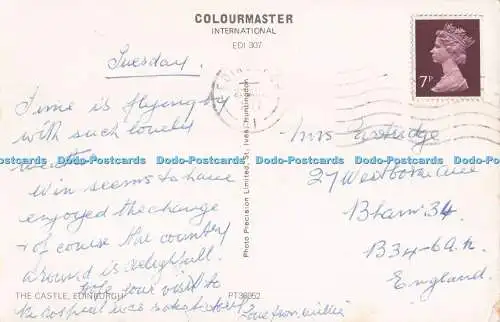 COLOURMASTER
INTERNATIONAL
EDI 307
Tuesday.
Time is flying by
with such lovely
weather
Win seems to have
enjoyed the change
& of course the country
around is delightful.
hope your visit to
the hospital was satisfactory
Love from Willie
7P
EDINBURGH
Mrs Partridge
27 Westbourne Ave
B'ham 34.
B34-6A
England.
Photo Precision Limited, St. Ives, Huntingdon
THE CASTLE, EDINBURGH
PT36952
Dodo-Postcards Dodo-Postcards Dodo-Postcards Dodo-Postcards Dodo-Postcards Dodo-Postcards